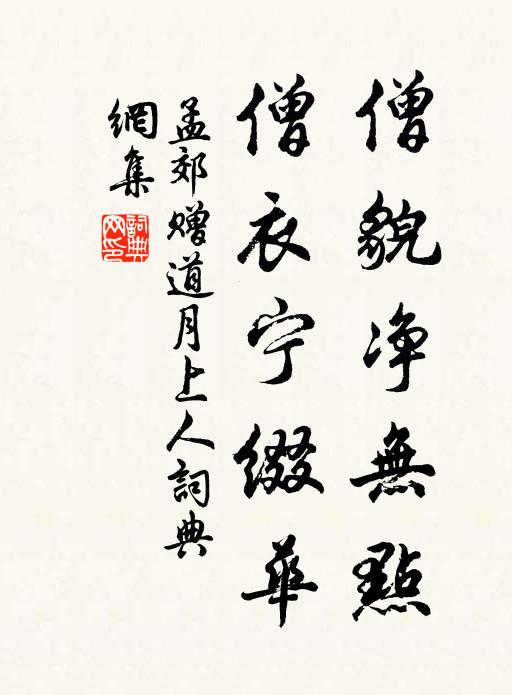 僧貌净無點
僧衣宁綴華
孟郊贈道月上人詞典
網集
詞典
网印